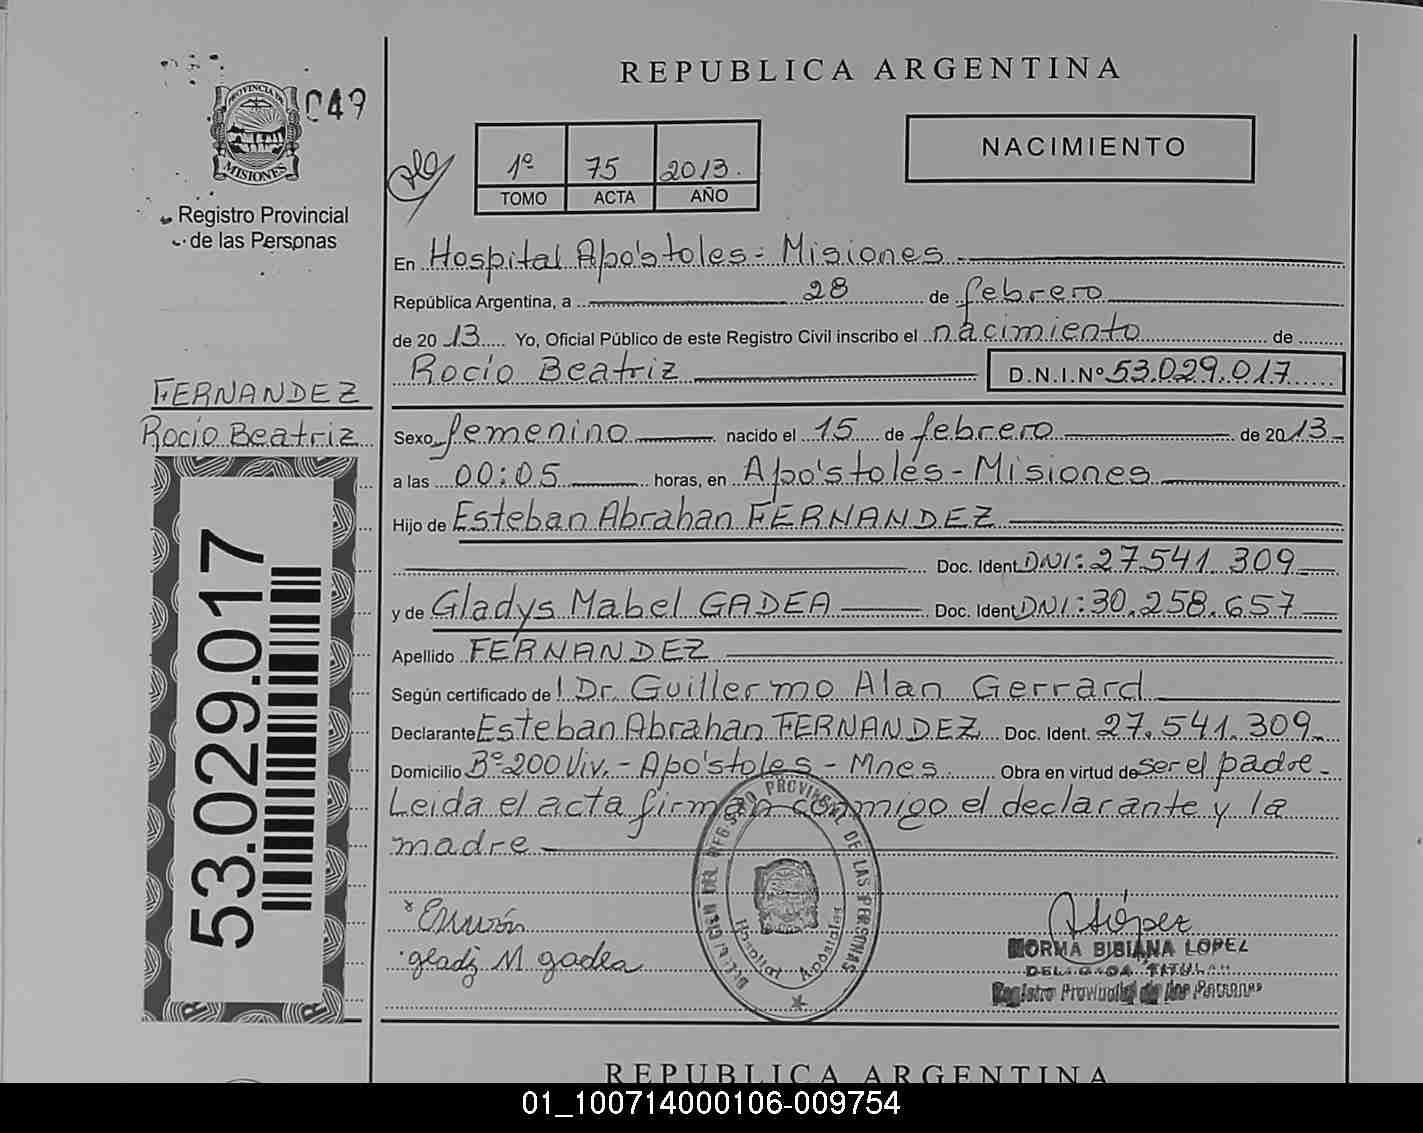 REPUBLICA ARGENTINA
049
PROVINCIA DE
MISIONES
Registro Provincial
de las Personas
1º 75 2013.
TOMO ACTA AÑO
NACIMIENTO
En Hospital Apóstoles - Misiones
República Argentina, a 28 de febrero
de 2013 Yo, Oficial Público de este Registro Civil inscribo el nacimiento de
Rocío Beatriz D.N.I.Nº 53.029.017
FERNANDEZ
Rocío Beatriz
Sexo femenino nacido el 15 de febrero de 2013
a las 00:05 horas, en Apóstoles - Misiones
Hijo de Esteban Abrahan FERNANDEZ
Doc. Ident DNI: 27.541.309
y de Gladys Mabel GADEA Doc. Ident DNI: 30.258.657
Apellido FERNANDEZ
Según certificado del Dr. Guillermo Alan Gerrard
Declarante Esteban Abrahan FERNANDEZ Doc. Ident. 27.541.309
Domicilio Bº 200 Viv. - Apóstoles - Mnes Obra en virtud de ser el padre -
Leida el acta firman conmigo el declarante y la
madre
53.029.017
gladi M gadea
REGISTRO PROVINCIAL DE LAS PERSONAS
Hospital Apóstoles
NORMA BIBIANA LOPEZ
DELEGADA TITULAR
Registro Provincial de las Personas
REPUBLICA ARGENTINA
01_100714000106-009754